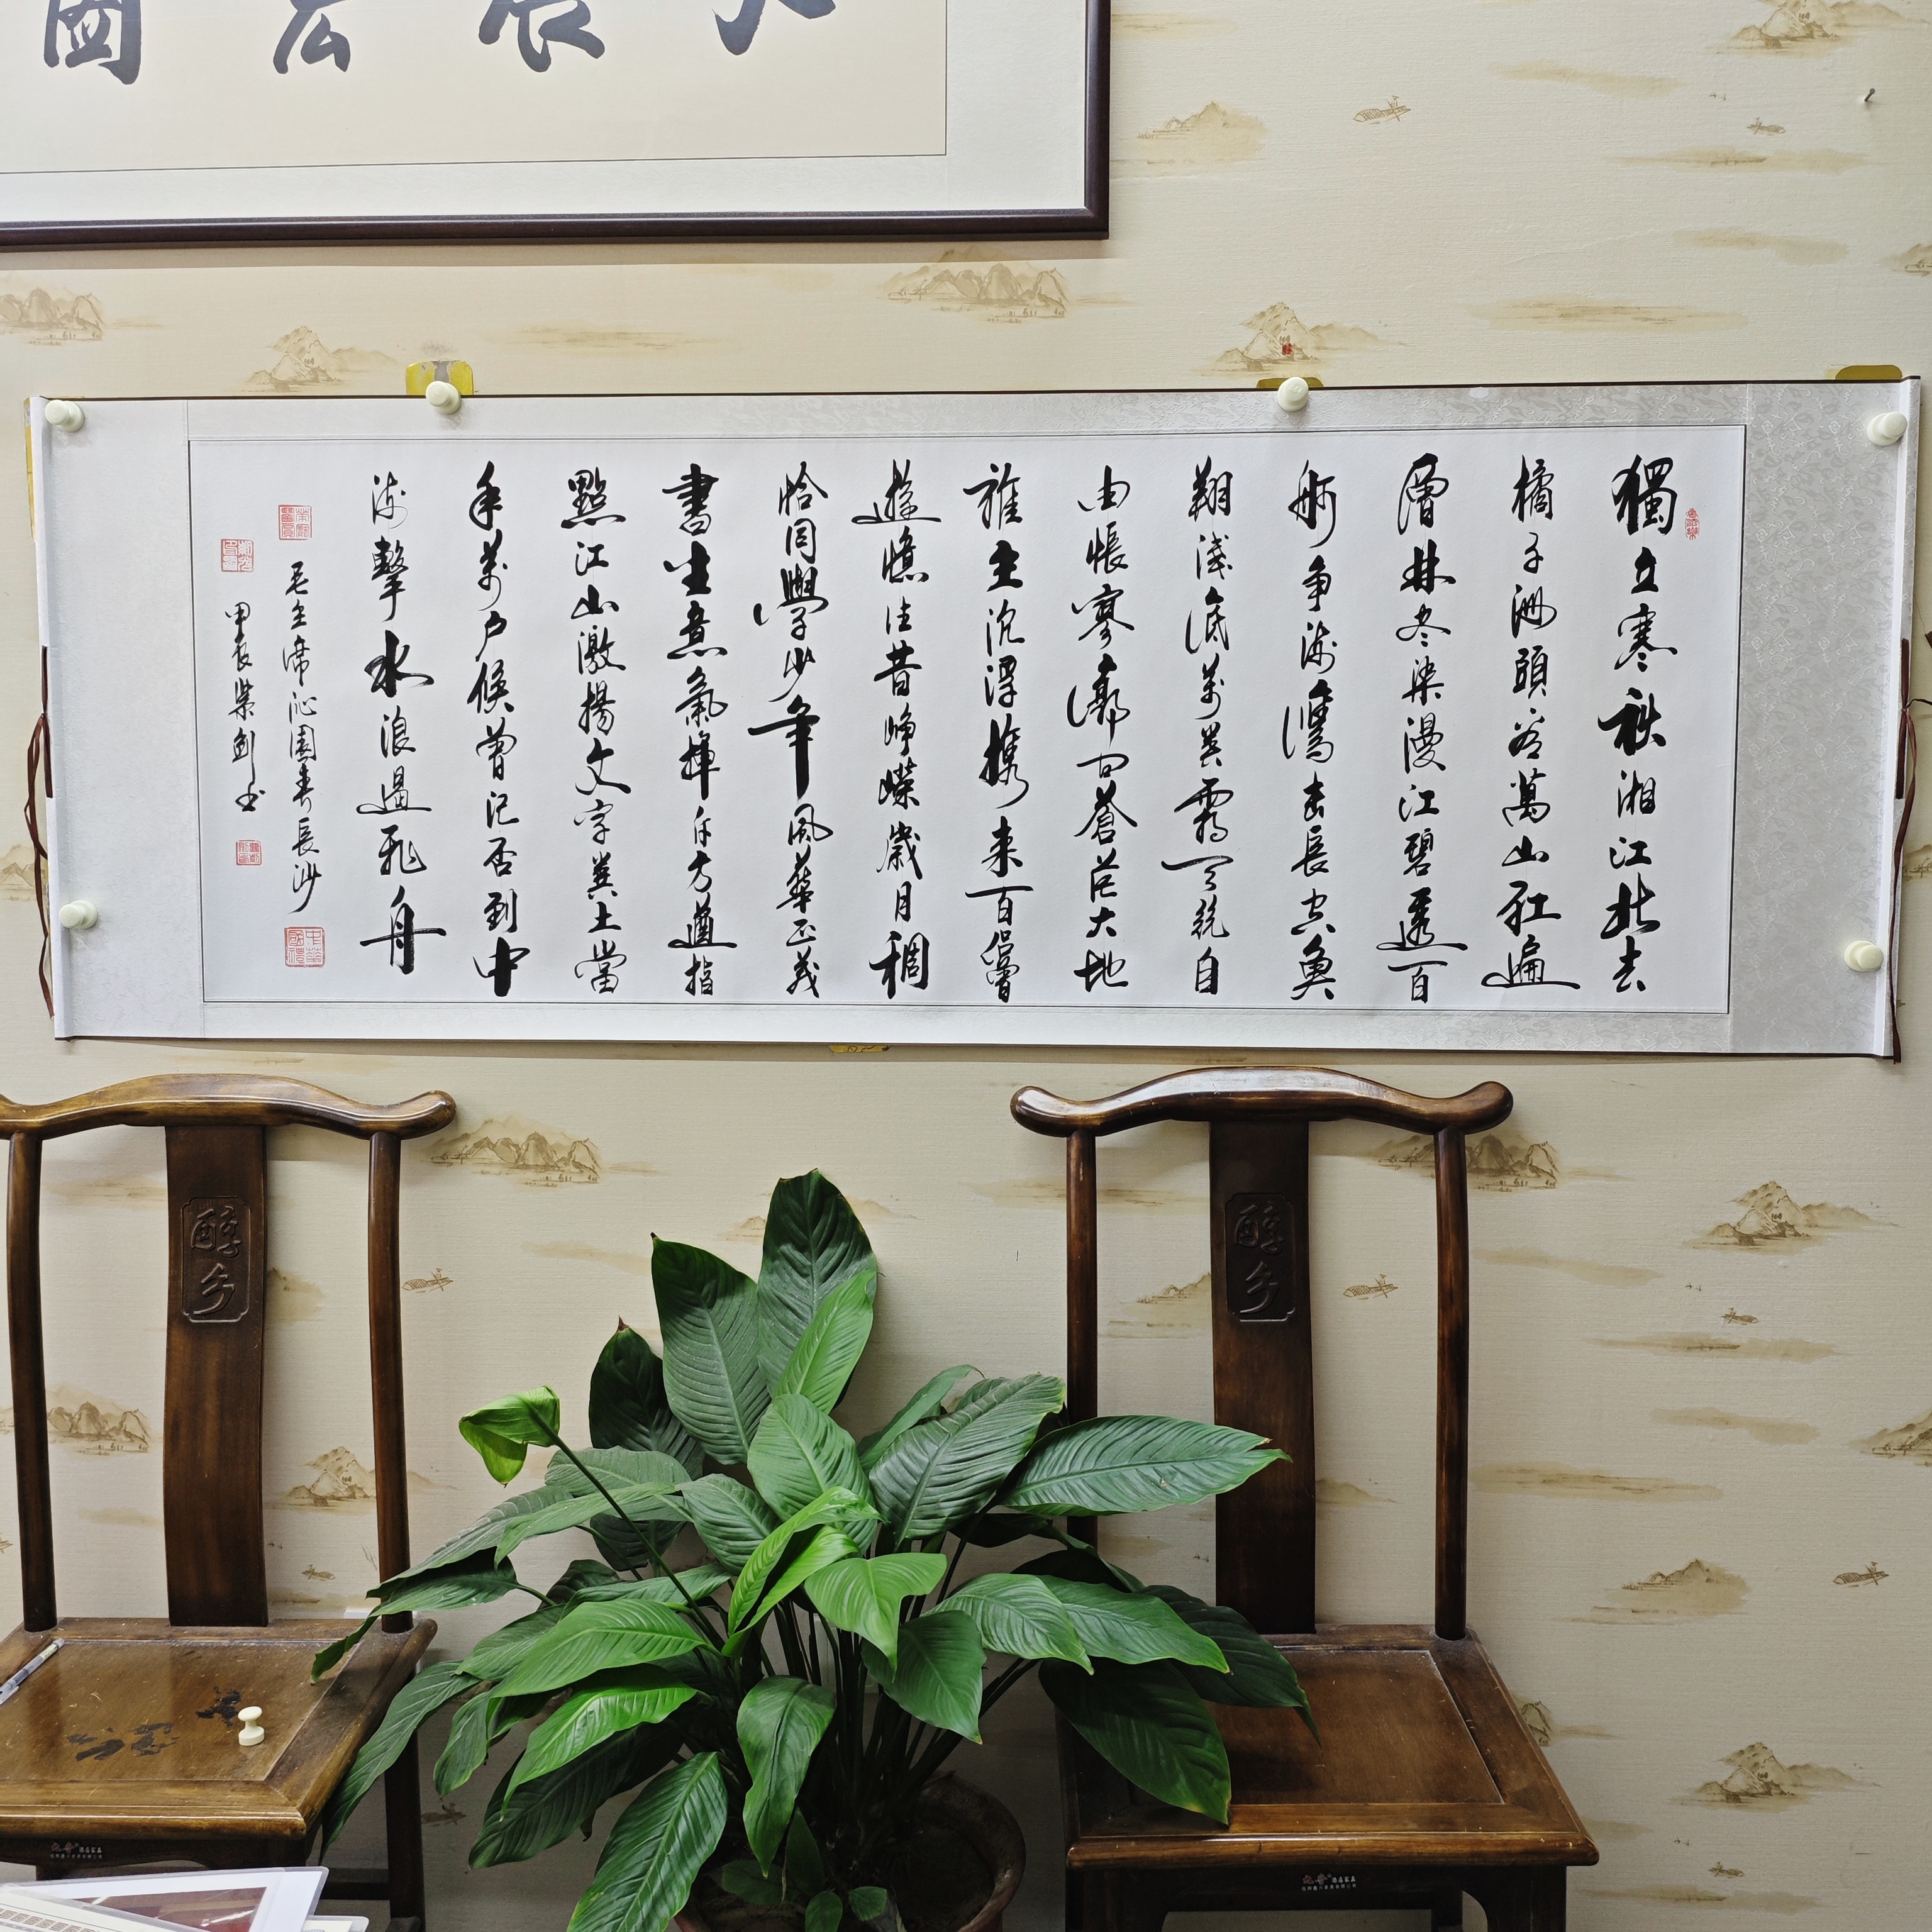 大展宏圖
獨立寒秋湘江北去
橘子洲頭看萬山紅遍
層林尽染漫江碧透百
舸争流鷹击長空魚
翔淺底萬类霜天競自
由悵寥廓问蒼茫大地
誰主沉浮携来百侣曾
遊憶往昔崢嶸歲月稠
恰同學少年風華正茂
書生意氣揮斥方遒指
點江山激揚文字糞土當
年萬户侯曾记否到中
流擊水浪遏飛舟
毛主席沁園春長沙
甲辰 剑书